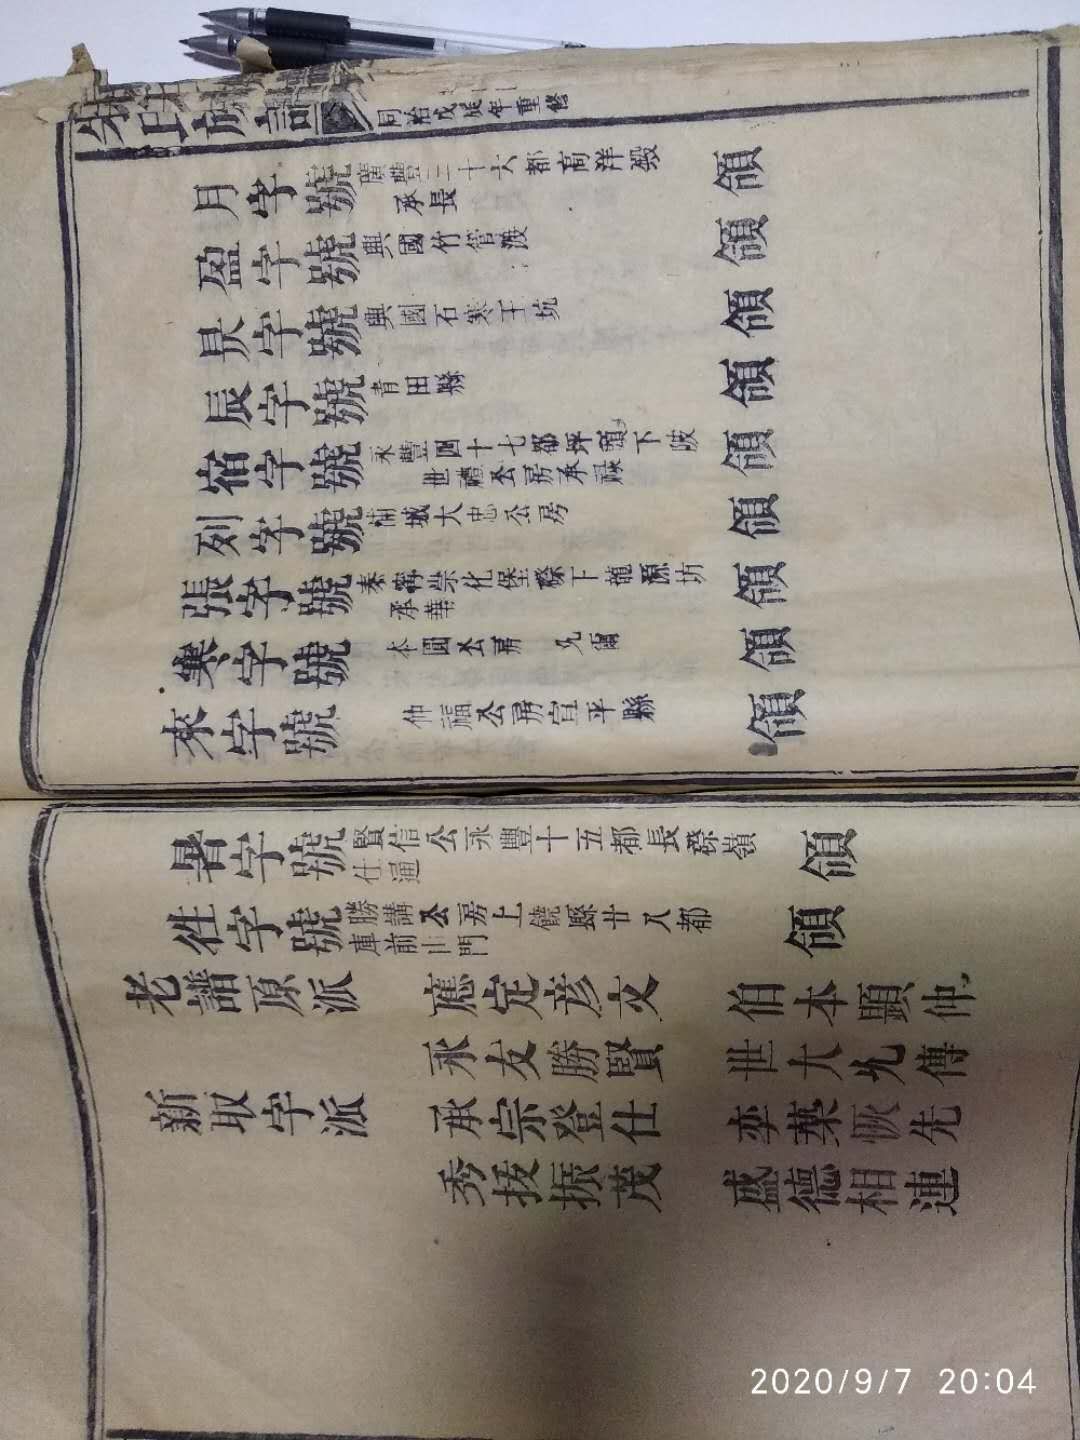 朱氏族譜 同治戊辰年重修
月字號 廣豐三十六都高洋殿 承長 領
盈字號 興國竹管渡 領
昃字號 興國石寒王坑 領
辰字號 青田縣 領
宿字號 永豐四十七都坪頭下陂 世禮公房承祿 領
列字號 浦城大中公房 領
張字號 泰寧崇化堡際下龍源坊 承華 領
寒字號 本圓公房 九爾 領
來字號 仲福公房宣平縣 領
暑字號 賢信公永豐十五都長際嶺 仕通 領
徃字號 勝講公房上饒縣廿八都 庫前山門 領
老譜原派 應定彥文 伯本顯仲
永友勝賢 世大九傳
新取字派 承宗登仕 奕葉恢先
秀拔振茂 盛德相連
2020/9/7 20:04